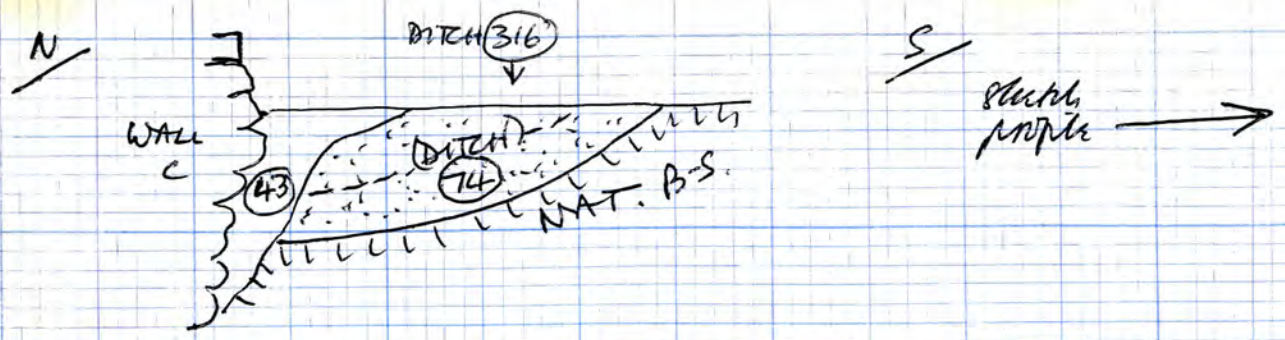 N
DITCH 316
S
sketch
profile
WALL
C
DITCH?
43
74
NAT. B.S.